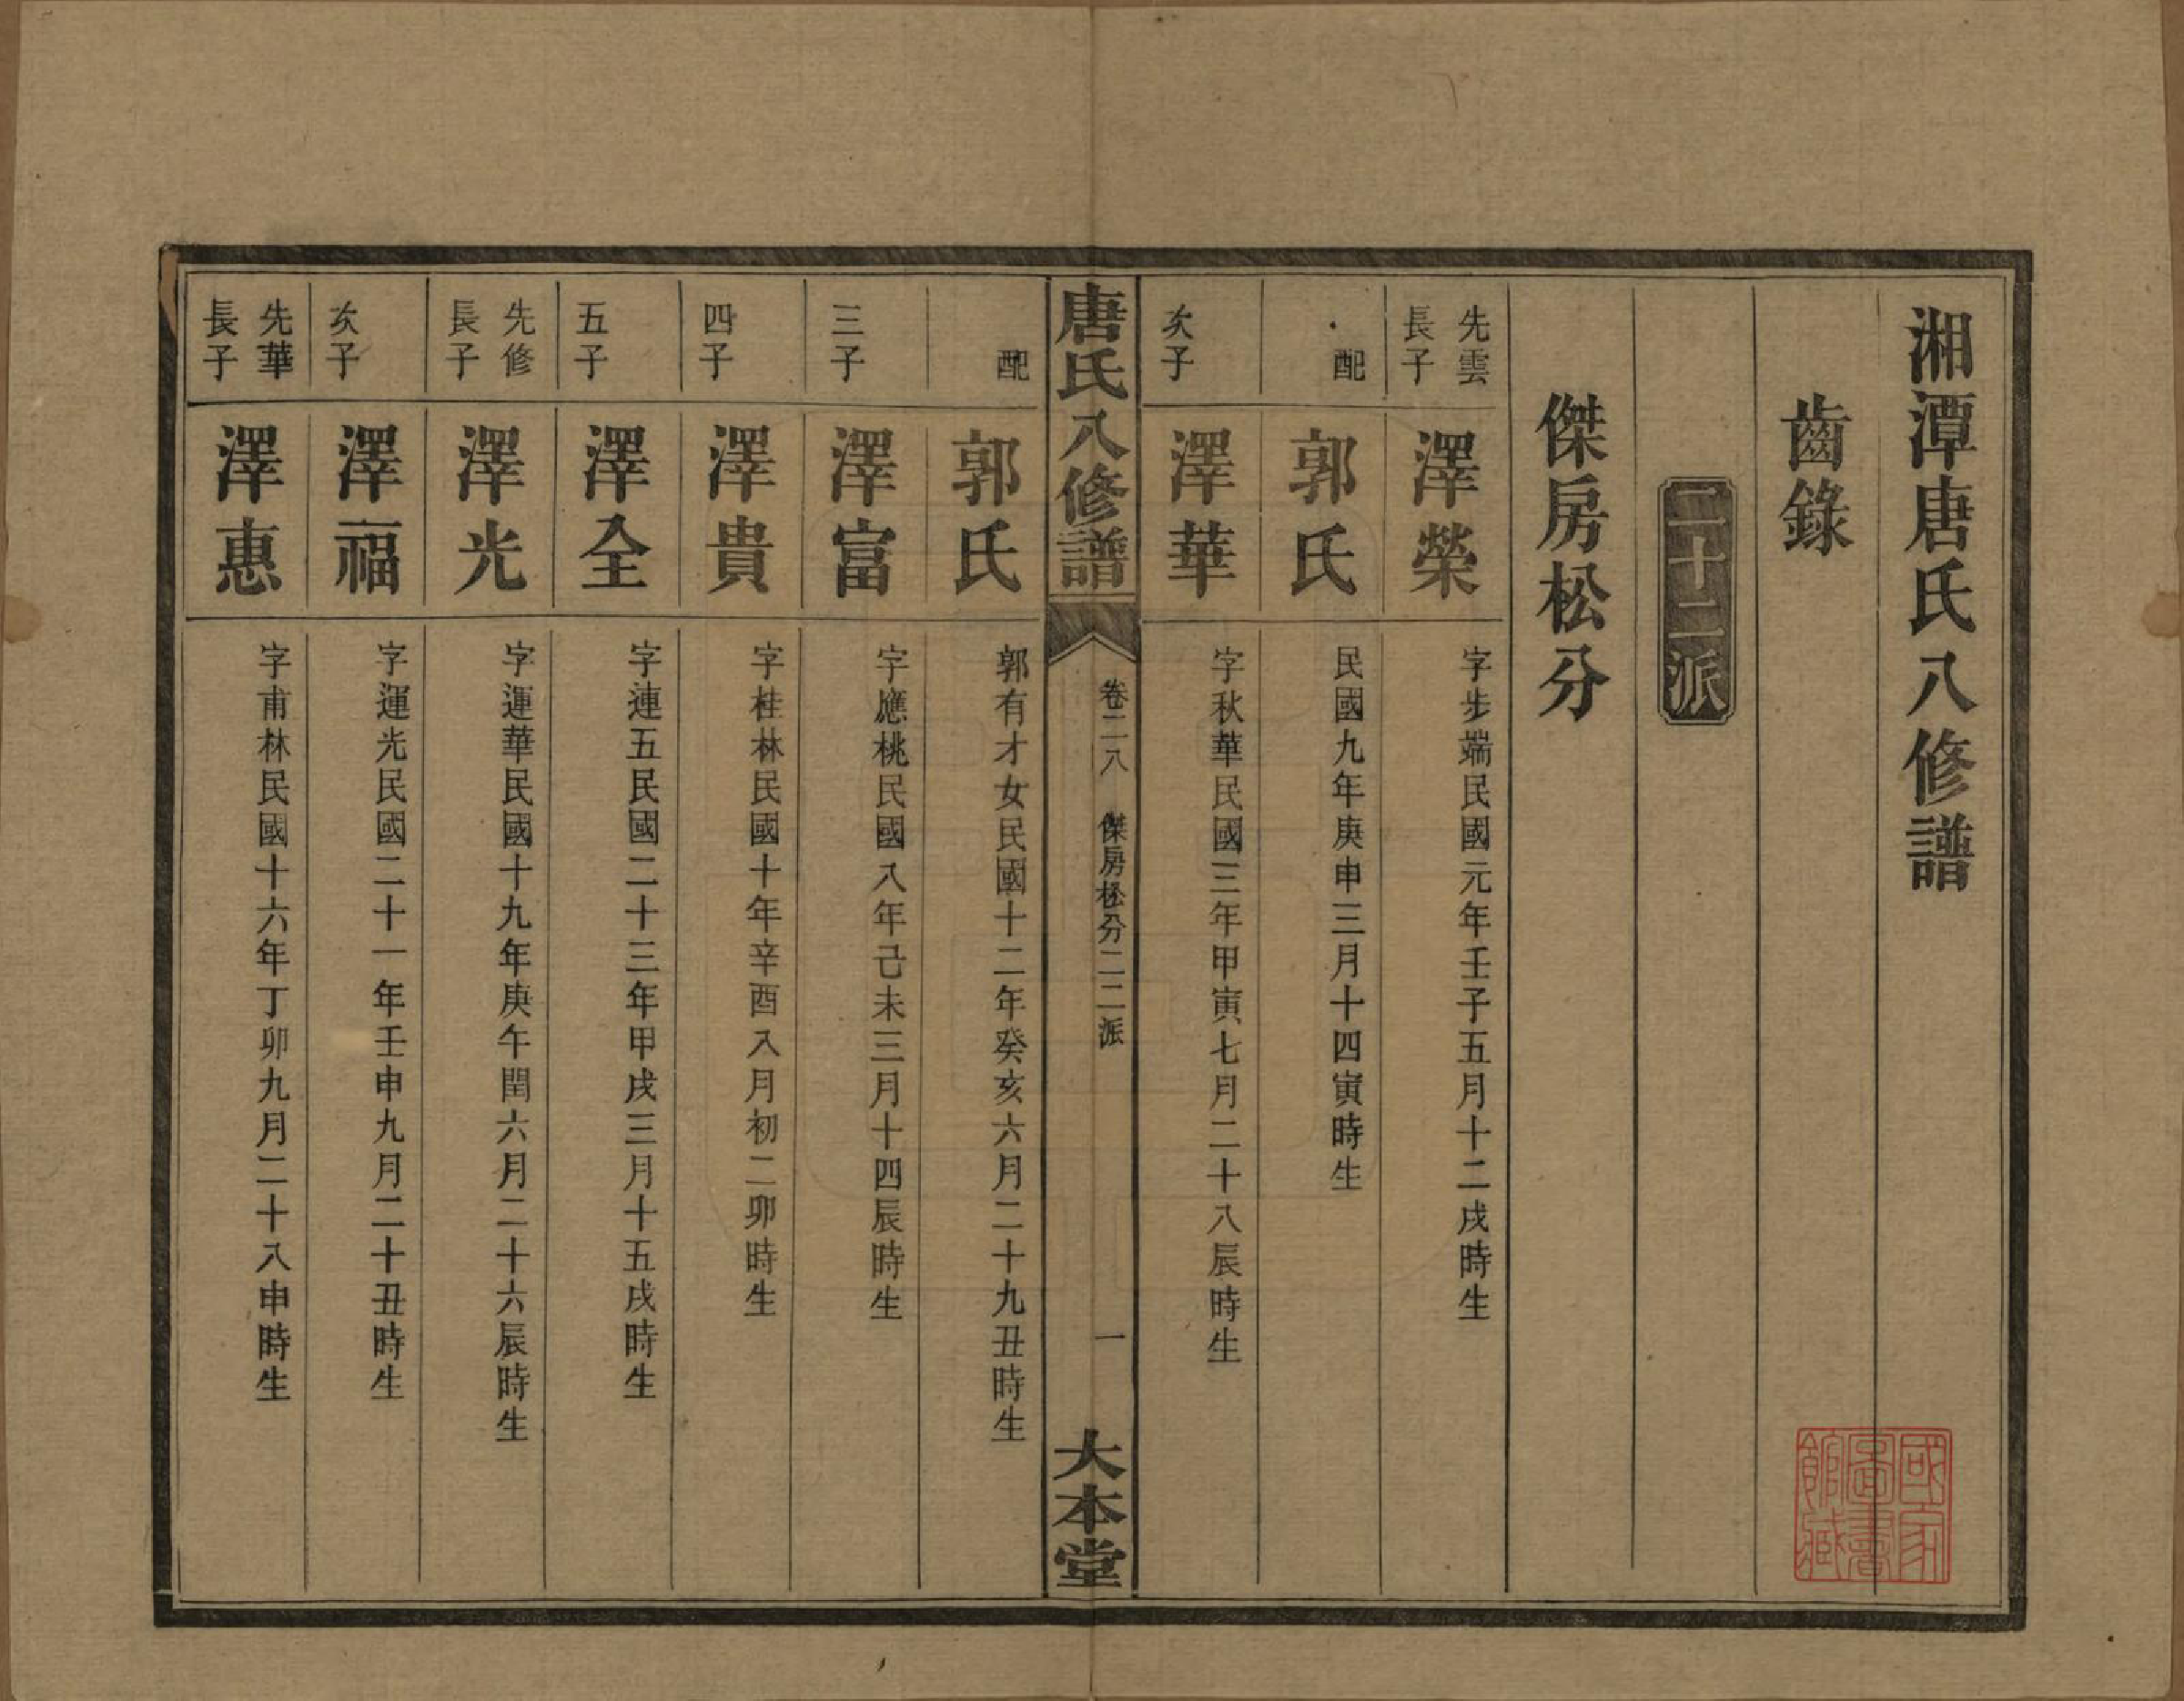 湘潭唐氏八修譜
齒錄
二十二派
傑房松分
先雲
長子
澤榮
字步端民國元年壬子五月十二戌時生
配
郭氏
民國九年庚申三月十四寅時生
次子
澤華
字秋華民國三年甲寅七月二十八辰時生
唐氏八修譜
卷二八 傑房松分二二派
一
大本堂
配
郭氏
郭有才女民國十二年癸亥六月二十九丑時生
三子
澤富
字應桃民國八年己未三月十四辰時生
四子
澤貴
字桂林民國十年辛酉八月初二卯時生
五子
澤全
字連五民國二十三年甲戌三月十五戌時生
先修
長子
澤光
字運華民國十九年庚午閏六月二十六辰時生
次子
澤福
字運光民國二十一年壬申九月二十丑時生
先華
長子
澤惠
字甫林民國十六年丁卯九月二十八申時生
國家
圖書
館藏